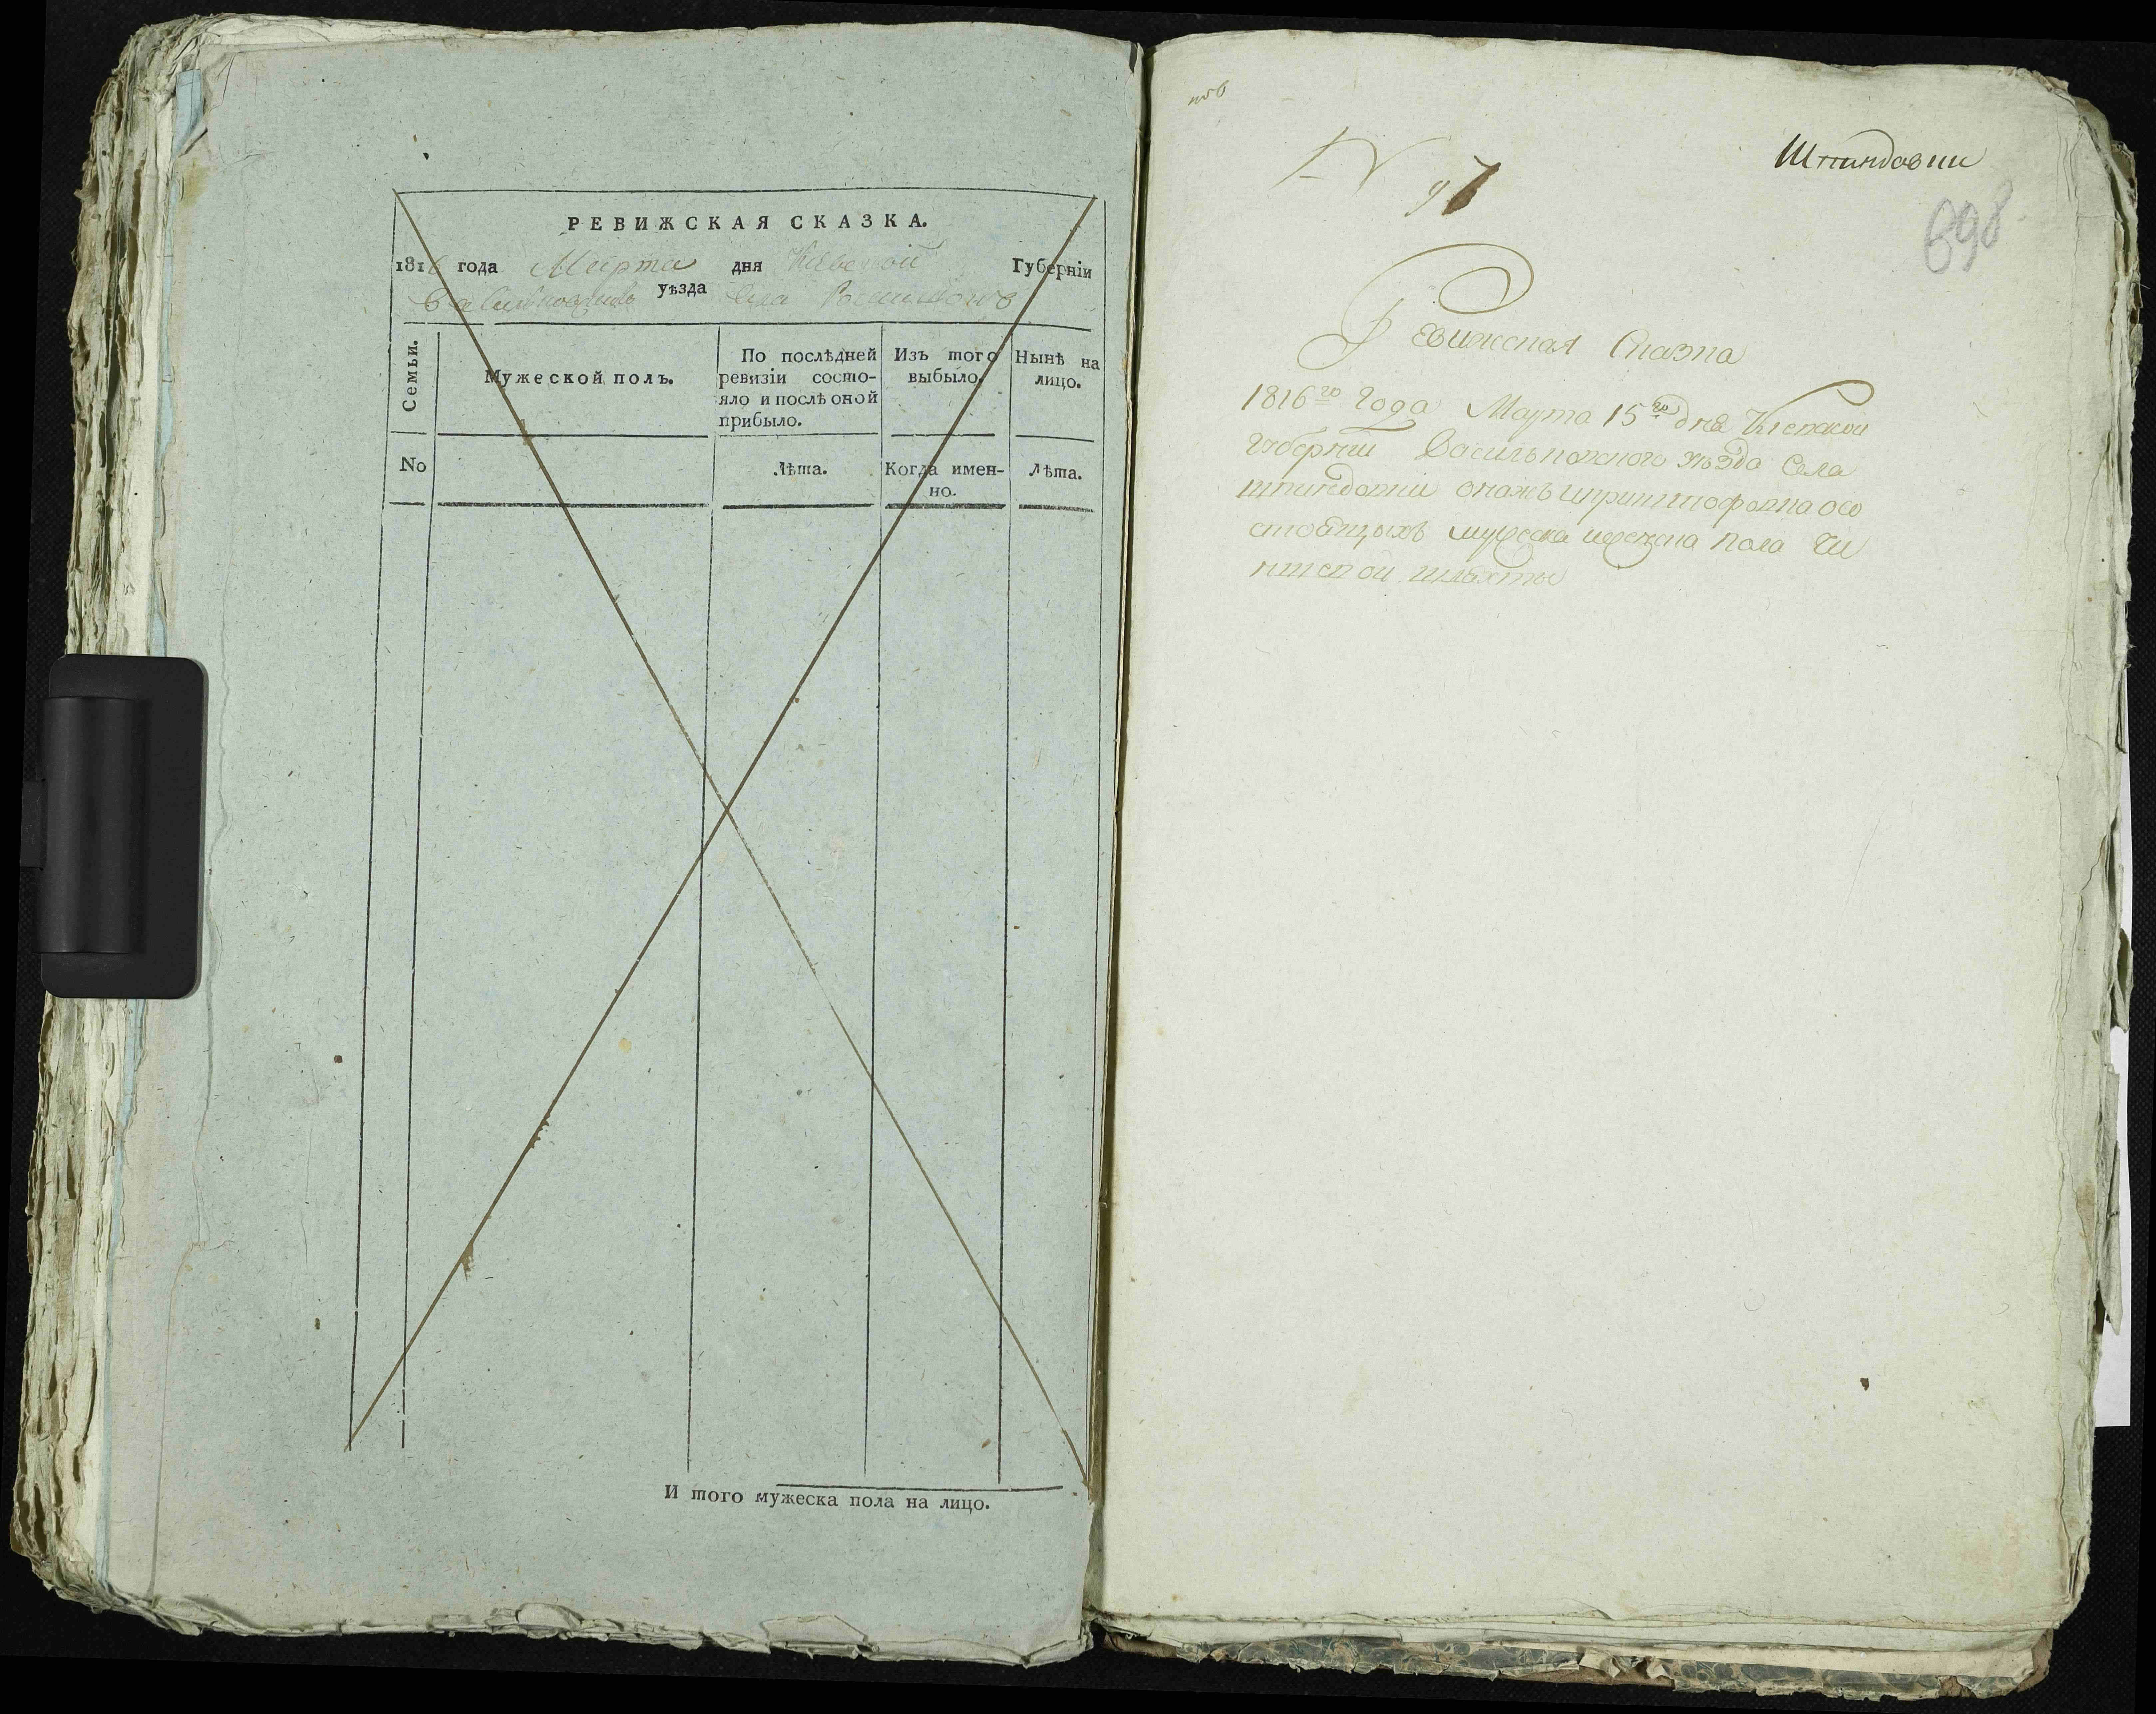 РЕВИЖСКАЯ СКАЗКА.
1816 года Марта дня Киевской Губернїи
Васильковскаго уѣзда Села
Семьи.
Мужеской полъ.
По послѣдней ревизїи состо-
яло и послѣ оной
прибыло.
Изъ того
выбыло.
Нынѣ на
лицо.
No
Лѣта.
Когда имен-
но.
Лѣта.
И того мужеска пола на лицо.
N 97
Шпиндовии
698
Ревижская Сказка
1816го Года Марта 15го дня Киевской
Губернїи Васильковского уѣзда Села
шпиндовии о
стоящыхъ мужеска и женска пола Чи
ншевой шляхты